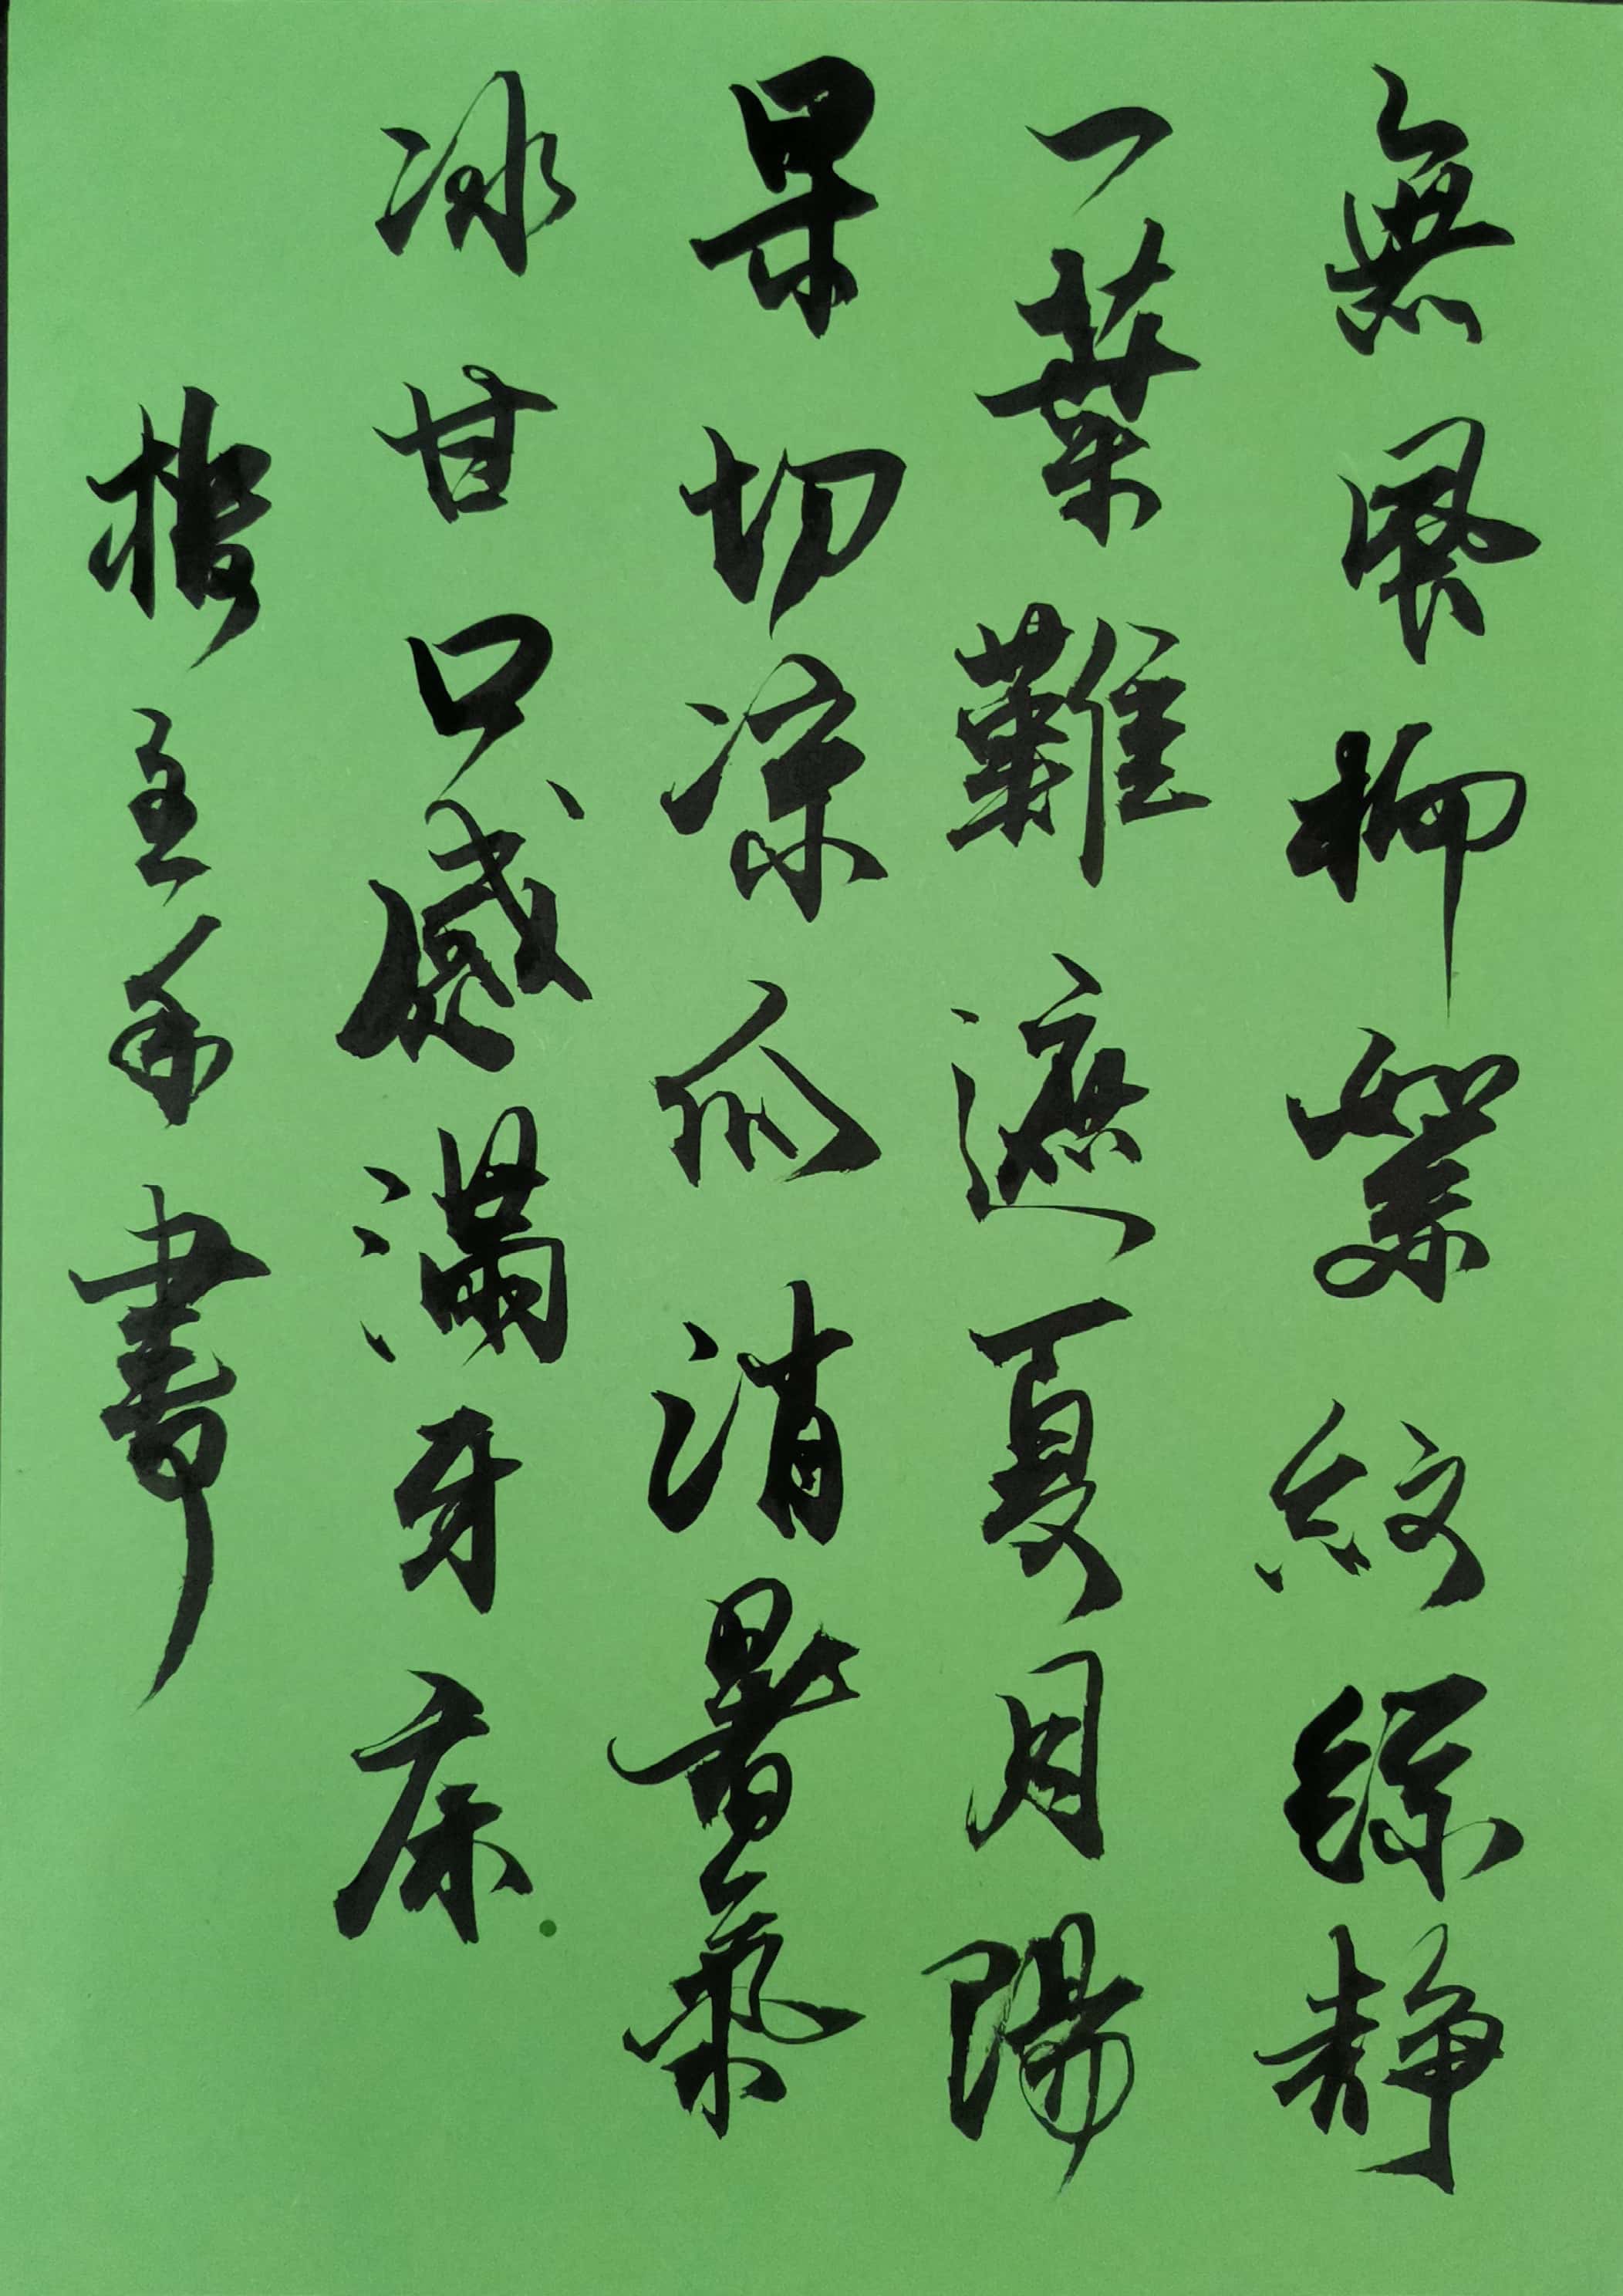 無風柳絮紋絲靜
一葉難遮夏月陽
果切涼瓜消暑氣
冰甘口感滿牙床
書